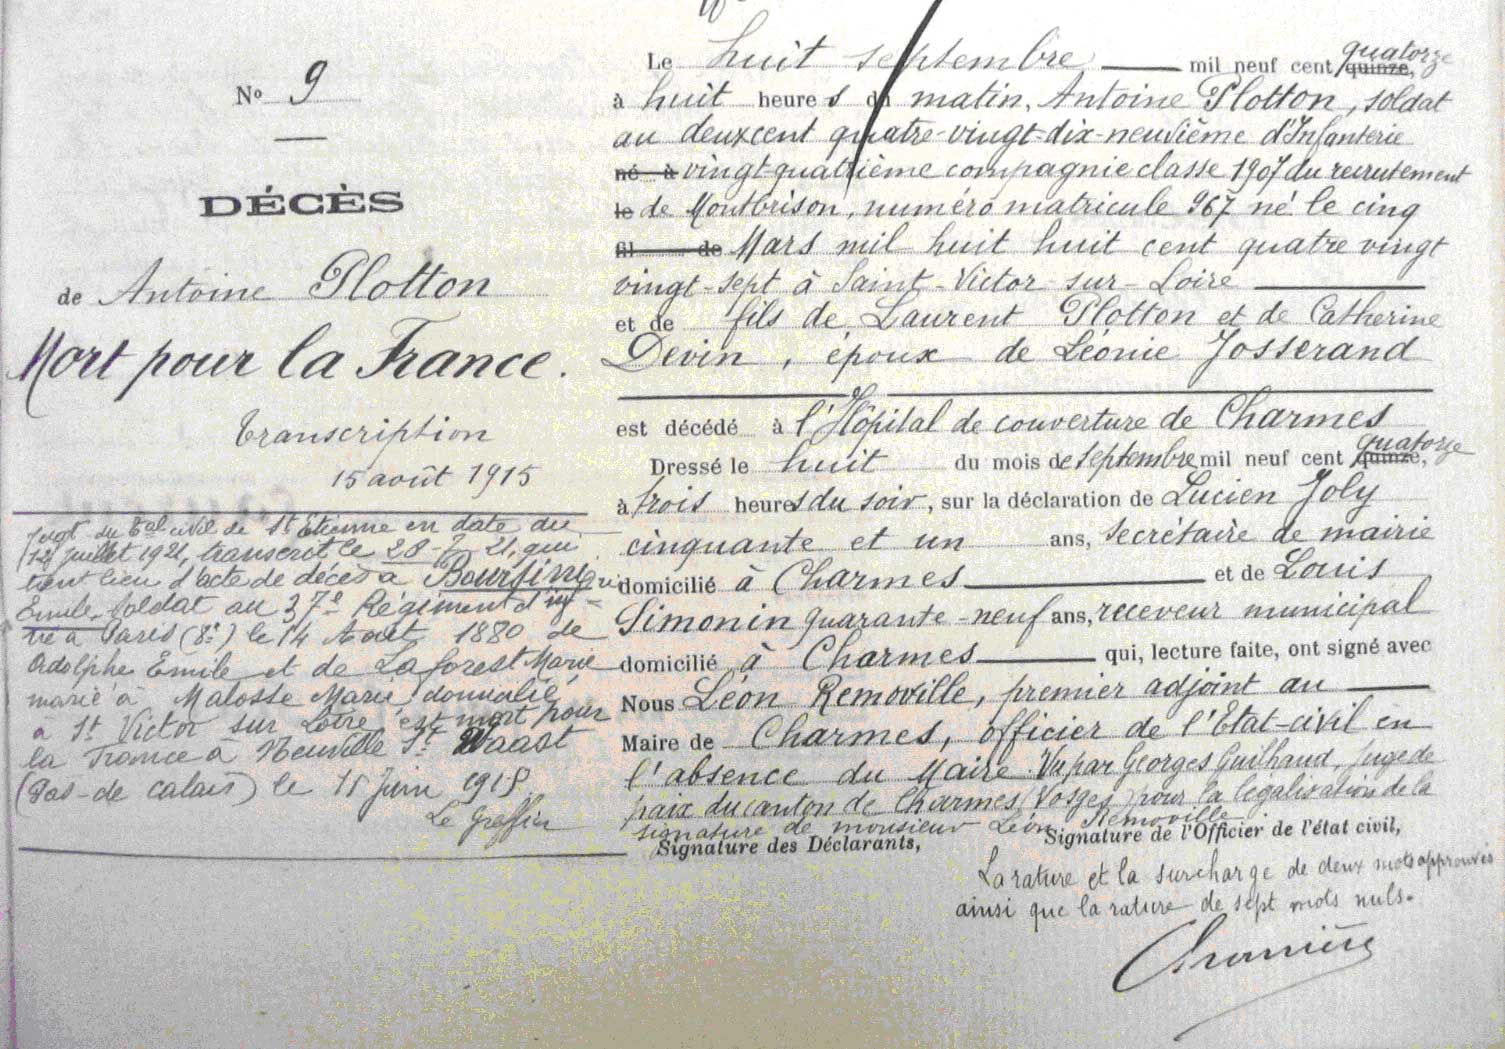 Nº 9
DÉCÈS
de Antoine Plotton
Mort pour la France.
Transcription
15 août 1915
Jugt du Bal civil de St Etienne en date du
(12) juillet 1921, transcrit le 28-7-21, qui
tient lieu d'acte de décès à Boursin
Emile, soldat au 37e Régiment d'inf-
rie à Paris (8e) le 14 Août 1880 de
Adolphe Emile et de Laforest Marie
marié à Malosse Marie, domicilié
à St Victor sur Loire, est mort pour
la France à Neuville St Waast
(Pas-de calais) le 15 juin 1915.
Le Greffier
Le huit septembre mil neuf cent quatorze quinze,
à huit heures du matin, Antoine Plotton, soldat
au deuxcent quatre-vingt-dix-neuvième d'Infanterie
né à vingt-quatrième compagnie classe 1907 du recrutement
le de Montbrison, numéro matricule 967 né le cinq
fil de Mars mil huit huit cent quatre vingt
vingt-sept à Saint-Victor-sur-Loire
et de fils de Laurent Plotton et de Catherine
Devin, époux de Léonie Josserand
est décédé à l'Hôpital de couverture de Charmes
Dressé le huit du mois de septembre mil neuf cent quatorze quinze,
à trois heures du soir, sur la déclaration de Lucien Joly
cinquante et un ans, secrétaire de mairie
domicilié à Charmes et de Louis
Simonin quarante-neuf ans, receveur municipal
domicilié à Charmes qui, lecture faite, ont signé avec
Nous Léon Removille, premier adjoint au
Maire de Charmes, officier de l'Etat-civil en
l'absence du Maire. Vu par Georges Guilhaud, juge de
paix du canton de Charmes (Vosges) pour la légalisation de la
signature de monsieur Léon Removille
Signature des Déclarants, Signature de l'Officier de l'état civil,
La rature et la surcharge de deux mots approuvés
ainsi que la rature de sept mots nuls.